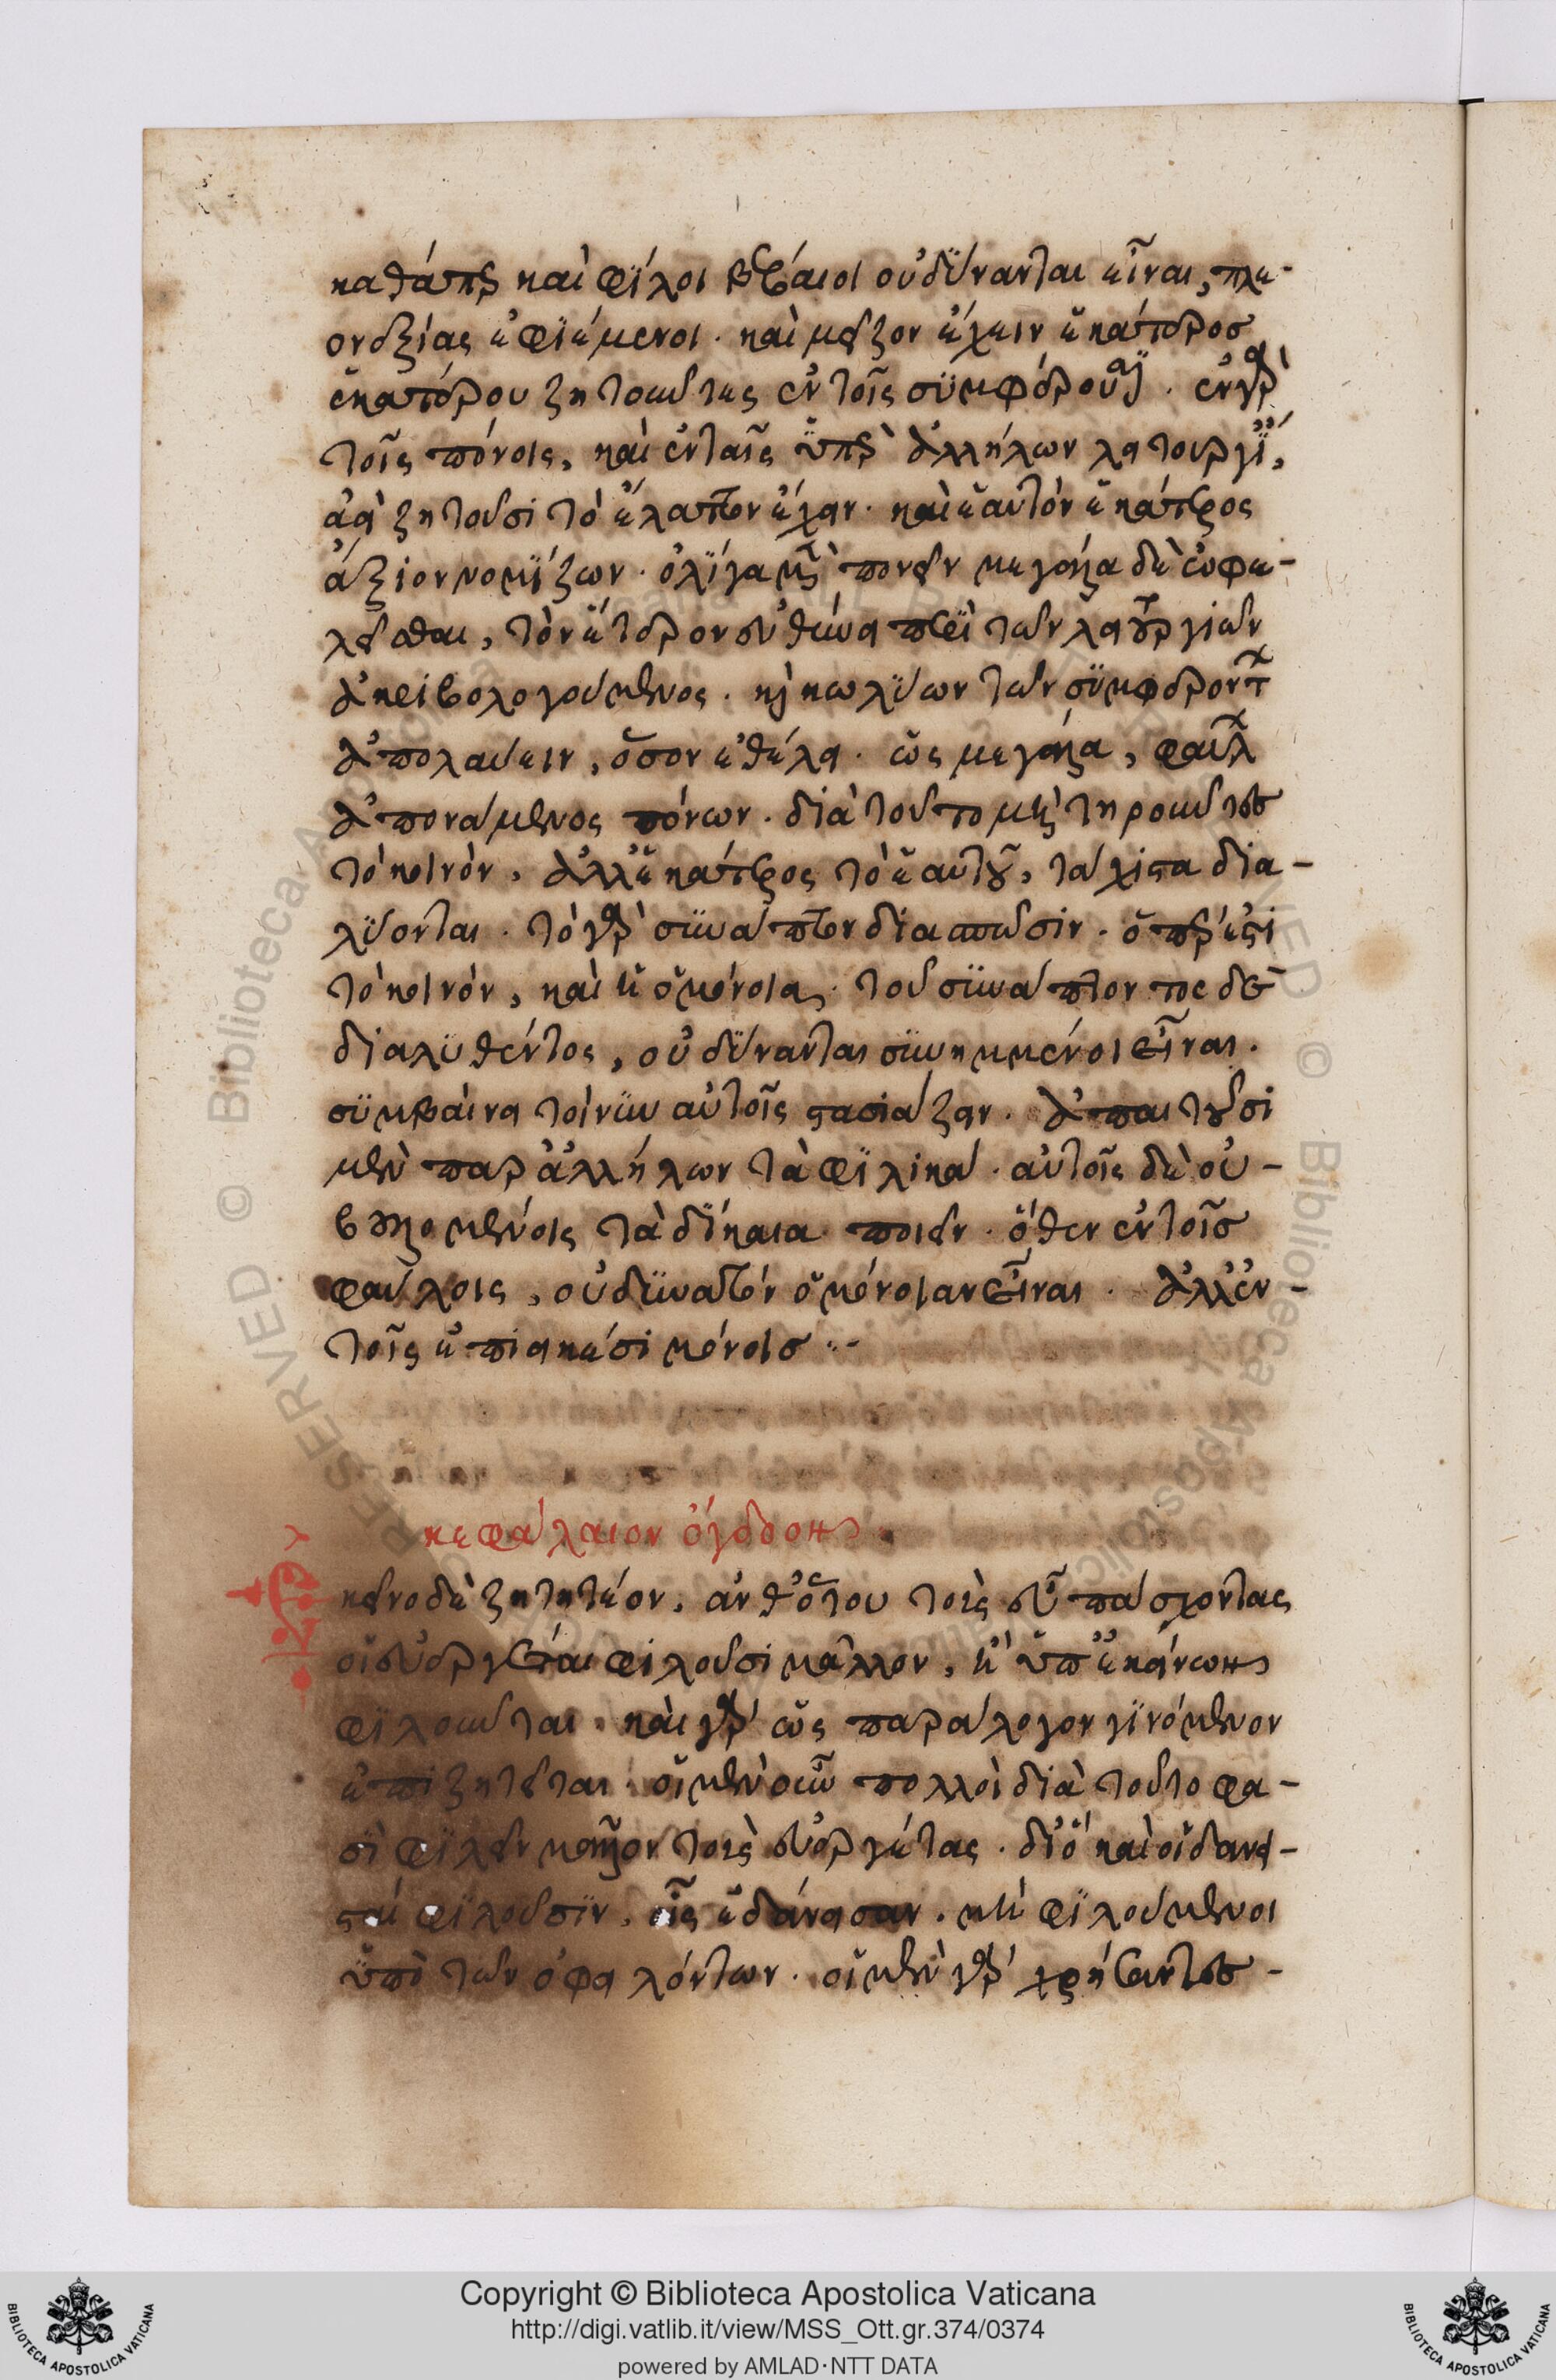 καθάπερ καὶ φίλοι βέβαιοι οὐ δύνανται εἶναι, πλε-
ονεξίας ἐφιέμενοι. καὶ μεῖζον ἔχειν ἑκάτερος
ἑκατέρου ζητοῦντες ἐν τοῖς συμφέρουσι. ἐν γὰρ
τοῖς πόνοις, καὶ ἐν ταῖς ὑπὲρ ἀλλήλων λειτουργίαις,
ἀεὶ ζητοῦσι τὸ ἔλαττον ἔχειν. καὶ ἑαυτὸν ἑκάτερος
ἄξιον νομίζων. ὀλίγα μὲν πονεῖν μεγάλα δὲ ὀφε-
λεῖσθαι, τὸν ἕτερον εὐθύνει περὶ τῶν λειτουργιῶν
ἀκριβολογούμενος. καὶ κωλύων τῶν συμφερόντων
ἀπολαύειν, ὅσον ἐθέλει. ὡς μεγάλα, φαύλων
ἀπονάμενος πόνων. διὰ τοῦτο μὴ τηροῦντες
τὸ κοινὸν, ἀλλ' ἑκάτερος τὸ ἑαυτοῦ, τάχιστα δια-
λύονται. τὸ γὰρ συνάπτον διασπῶσιν. ὅπερ ἐστὶ
τὸ κοινὸν, καὶ ἡ ὁμόνοια. τοῦ συνάπτοντος δὲ
διαλυθέντος, οὐ δύνανται συνημμένοι εἶναι.
συμβαίνει τοίνυν αὐτοῖς στασιάζειν. ἀπαιτοῦσι
μὲν παρ' ἀλλήλων τὰ φιλικά. αὐτοῖς δὲ οὐ-
βουλομένοις τὰ δίκαια ποιεῖν. ὅθεν ἐν τοῖς
φαύλοις, οὐ δυνατὸν ὁμόνοιαν εἶναι. ἀλλ' ἐν-
τοῖς ἐπιεικέσι μόνοις.
κεφάλαιον ὄγδοον
κεῖνο δὲ ζητητέον, ἀνθ' ὅτου τοὺς εὖ πάσχοντας
οἱ εὐεργέται φιλοῦσι μᾶλλον, ἢ ὑπ' ἐκείνων
φιλοῦνται. καὶ γὰρ ὡς παράλογον γινόμενον
ἐπιζητεῖται. οἱ μὲν οὖν πολλοὶ διὰ τοῦτο φα-
σὶ φιλεῖν μᾶλλον τοὺς εὐεργέτας. διὸ καὶ οἱ δανει-
σταὶ φιλοῦσιν, οἷς ἐδάνεισαν. μὴ φιλούμενοι
ὑπὸ τῶν ὀφειλόντων. οἱ μὲν γὰρ χρήσαντες -
Copyright © Biblioteca Apostolica Vaticana
http://digi.vatlib.it/view/MSS_Ott.gr.374/0374
powered by AMLAD·NTT DATA